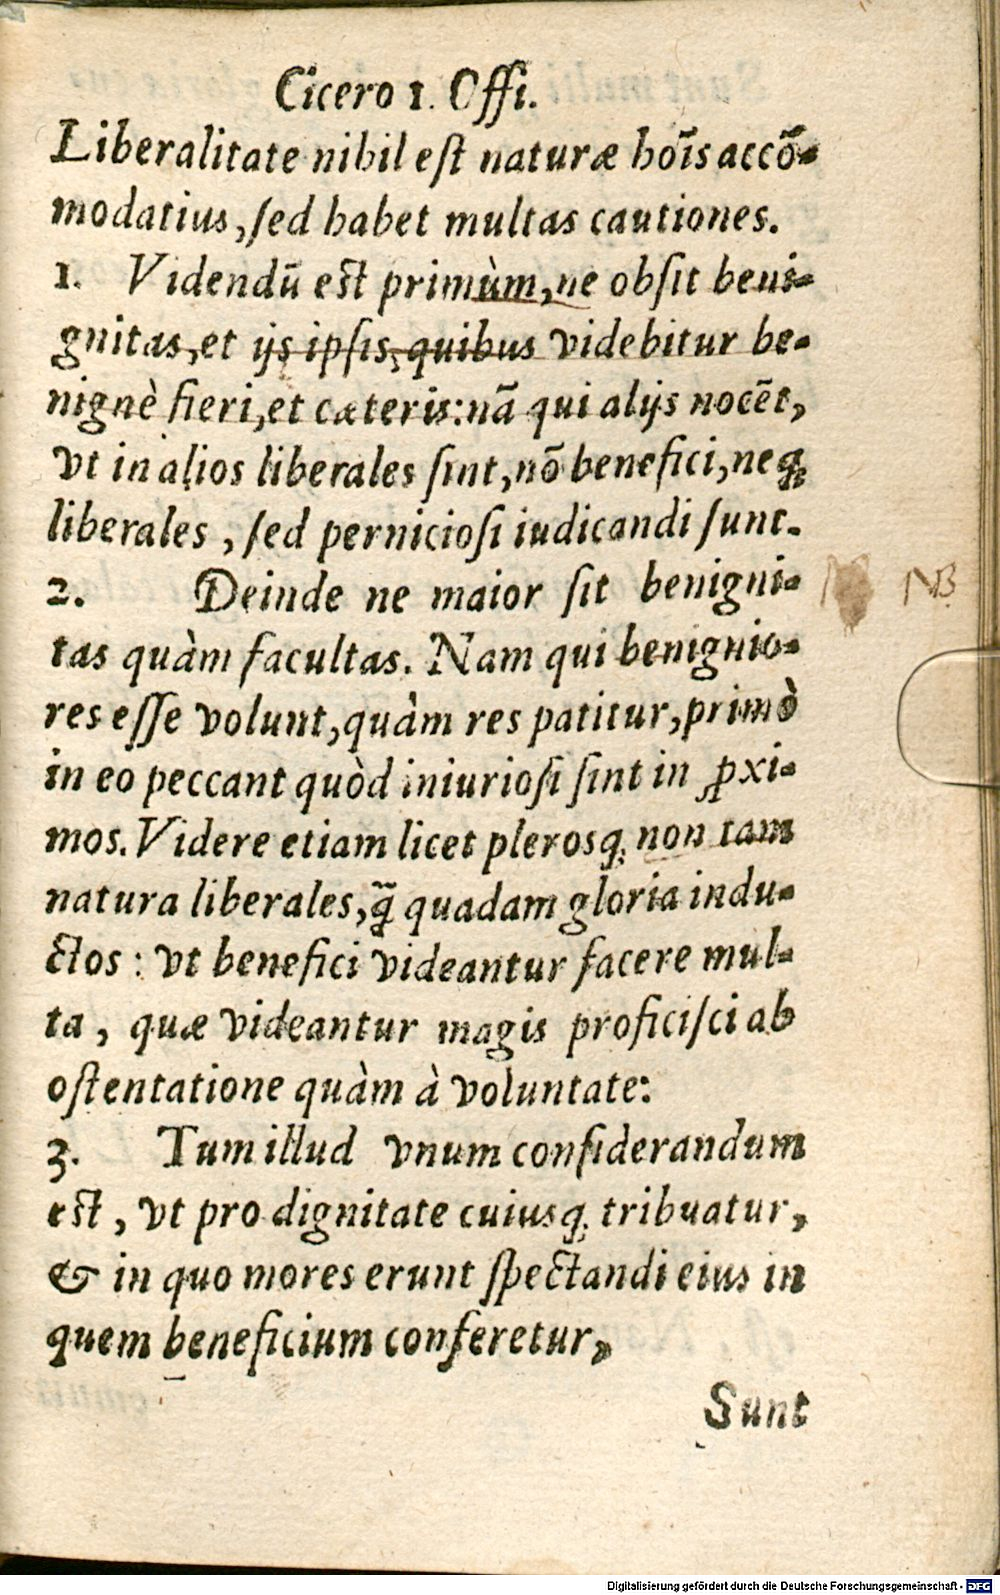 Cicero 1. Offi.
Liberalitate nihil est naturæ hoīs accō-
modatius, sed habet multas cautiones.
1. Videndū est primùm, ne obsit beni-
gnitas, et ijs ipsis, quibus videbitur be-
nignè fieri, et cæteris: nā qui alijs nocēt,
vt in alios liberales sint, nō benefici, neq́;
liberales, sed perniciosi iudicandi sunt.
2. Deinde ne maior sit benigni-
NB
tas quàm facultas. Nam qui benignio-
res esse volunt, quàm res patitur, primò
in eo peccant quòd iniuriosi sint in ꝓxi-
mos. Videre etiam licet plerosq; non tam
natura liberales, q̃ quadam gloria indu-
ctos: vt benefici videantur facere mul-
ta, quæ videantur magis proficisci ab
ostentatione quàm à voluntate:
3. Tum illud vnum considerandum
est, vt pro dignitate cuiusq; tribuatur,
& in quo mores erunt spectandi eius in
quem beneficium conferetur,
Sunt
Digitalisierung gefördert durch die Deutsche Forschungsgemeinschaft - DFG